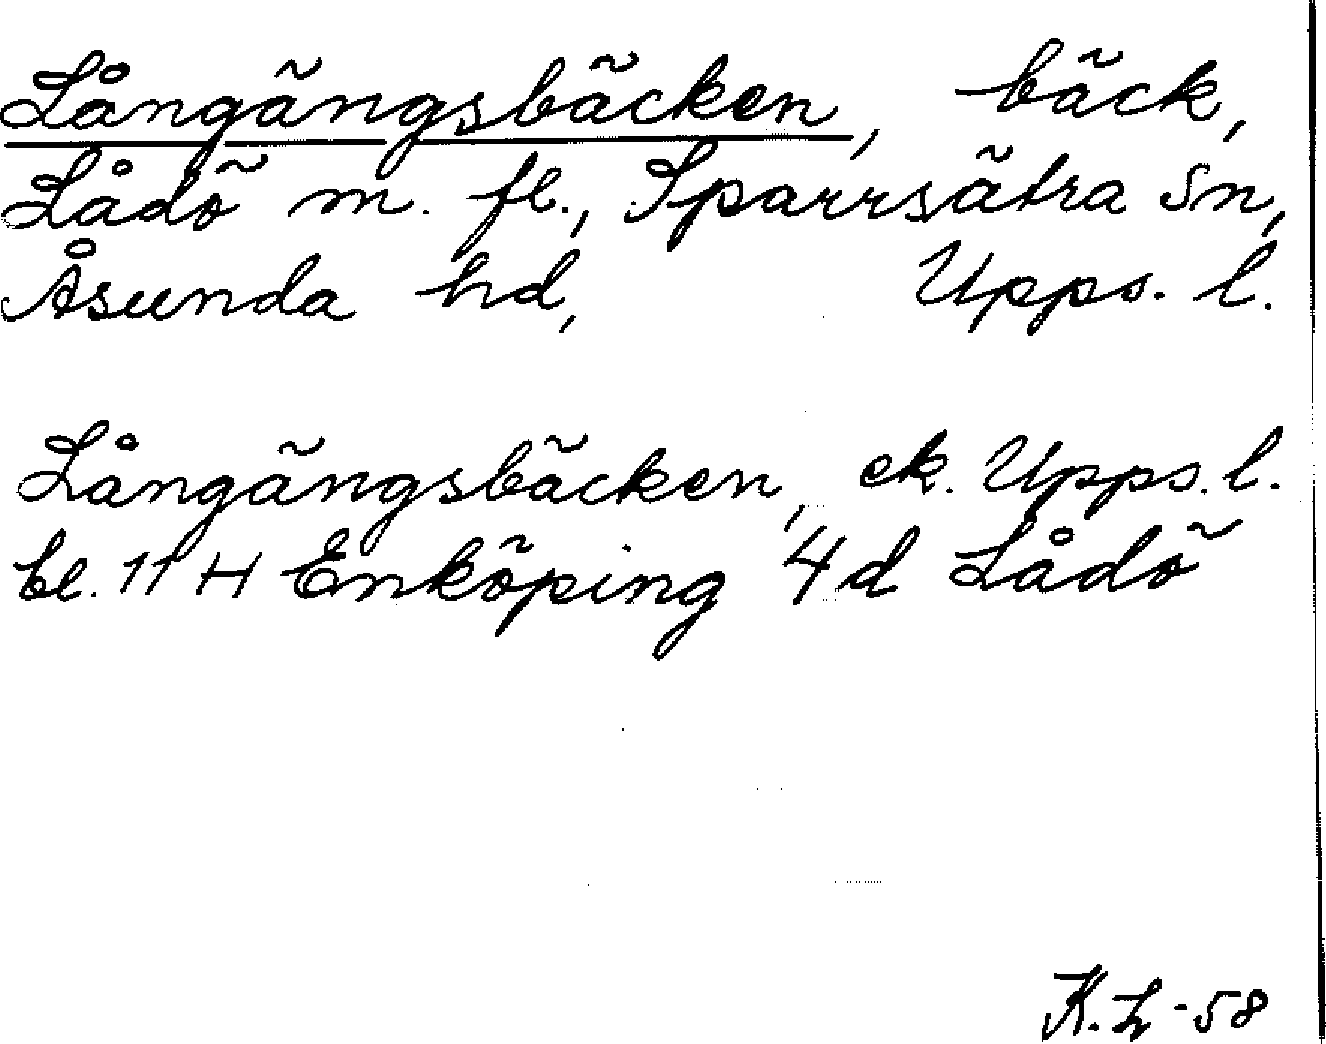 Långängsbäcken, bäck,
Lådö m. fl., Sparrsätra sn,
Åsunda hd, Upps. l.
Långängsbäcken, ek. Upps. l.
bl. 11 H Enköping 4 d Lådö
K. L -58